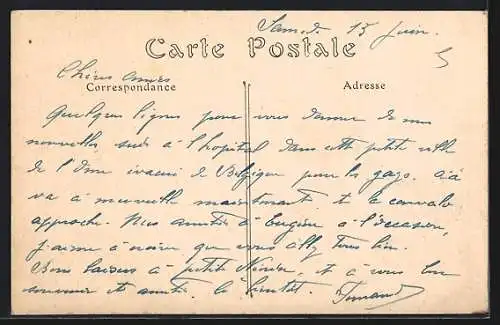 Samd. 13 juin.
Carte Postale
Chères amies
Correspondance
Adresse
Quelques lignes pour vous donner de mes
nouvelles, suis à l'hopital dans cette petite ville
de l'Orne de Belgique pour les
va à merveille maintenant et la
approche. Mes à Eugène à l'occasion,
j'aime à croire que vous allez tous bien.
Bons baisers à petite et à vous bon
souvenir et à bientôt. Fernand